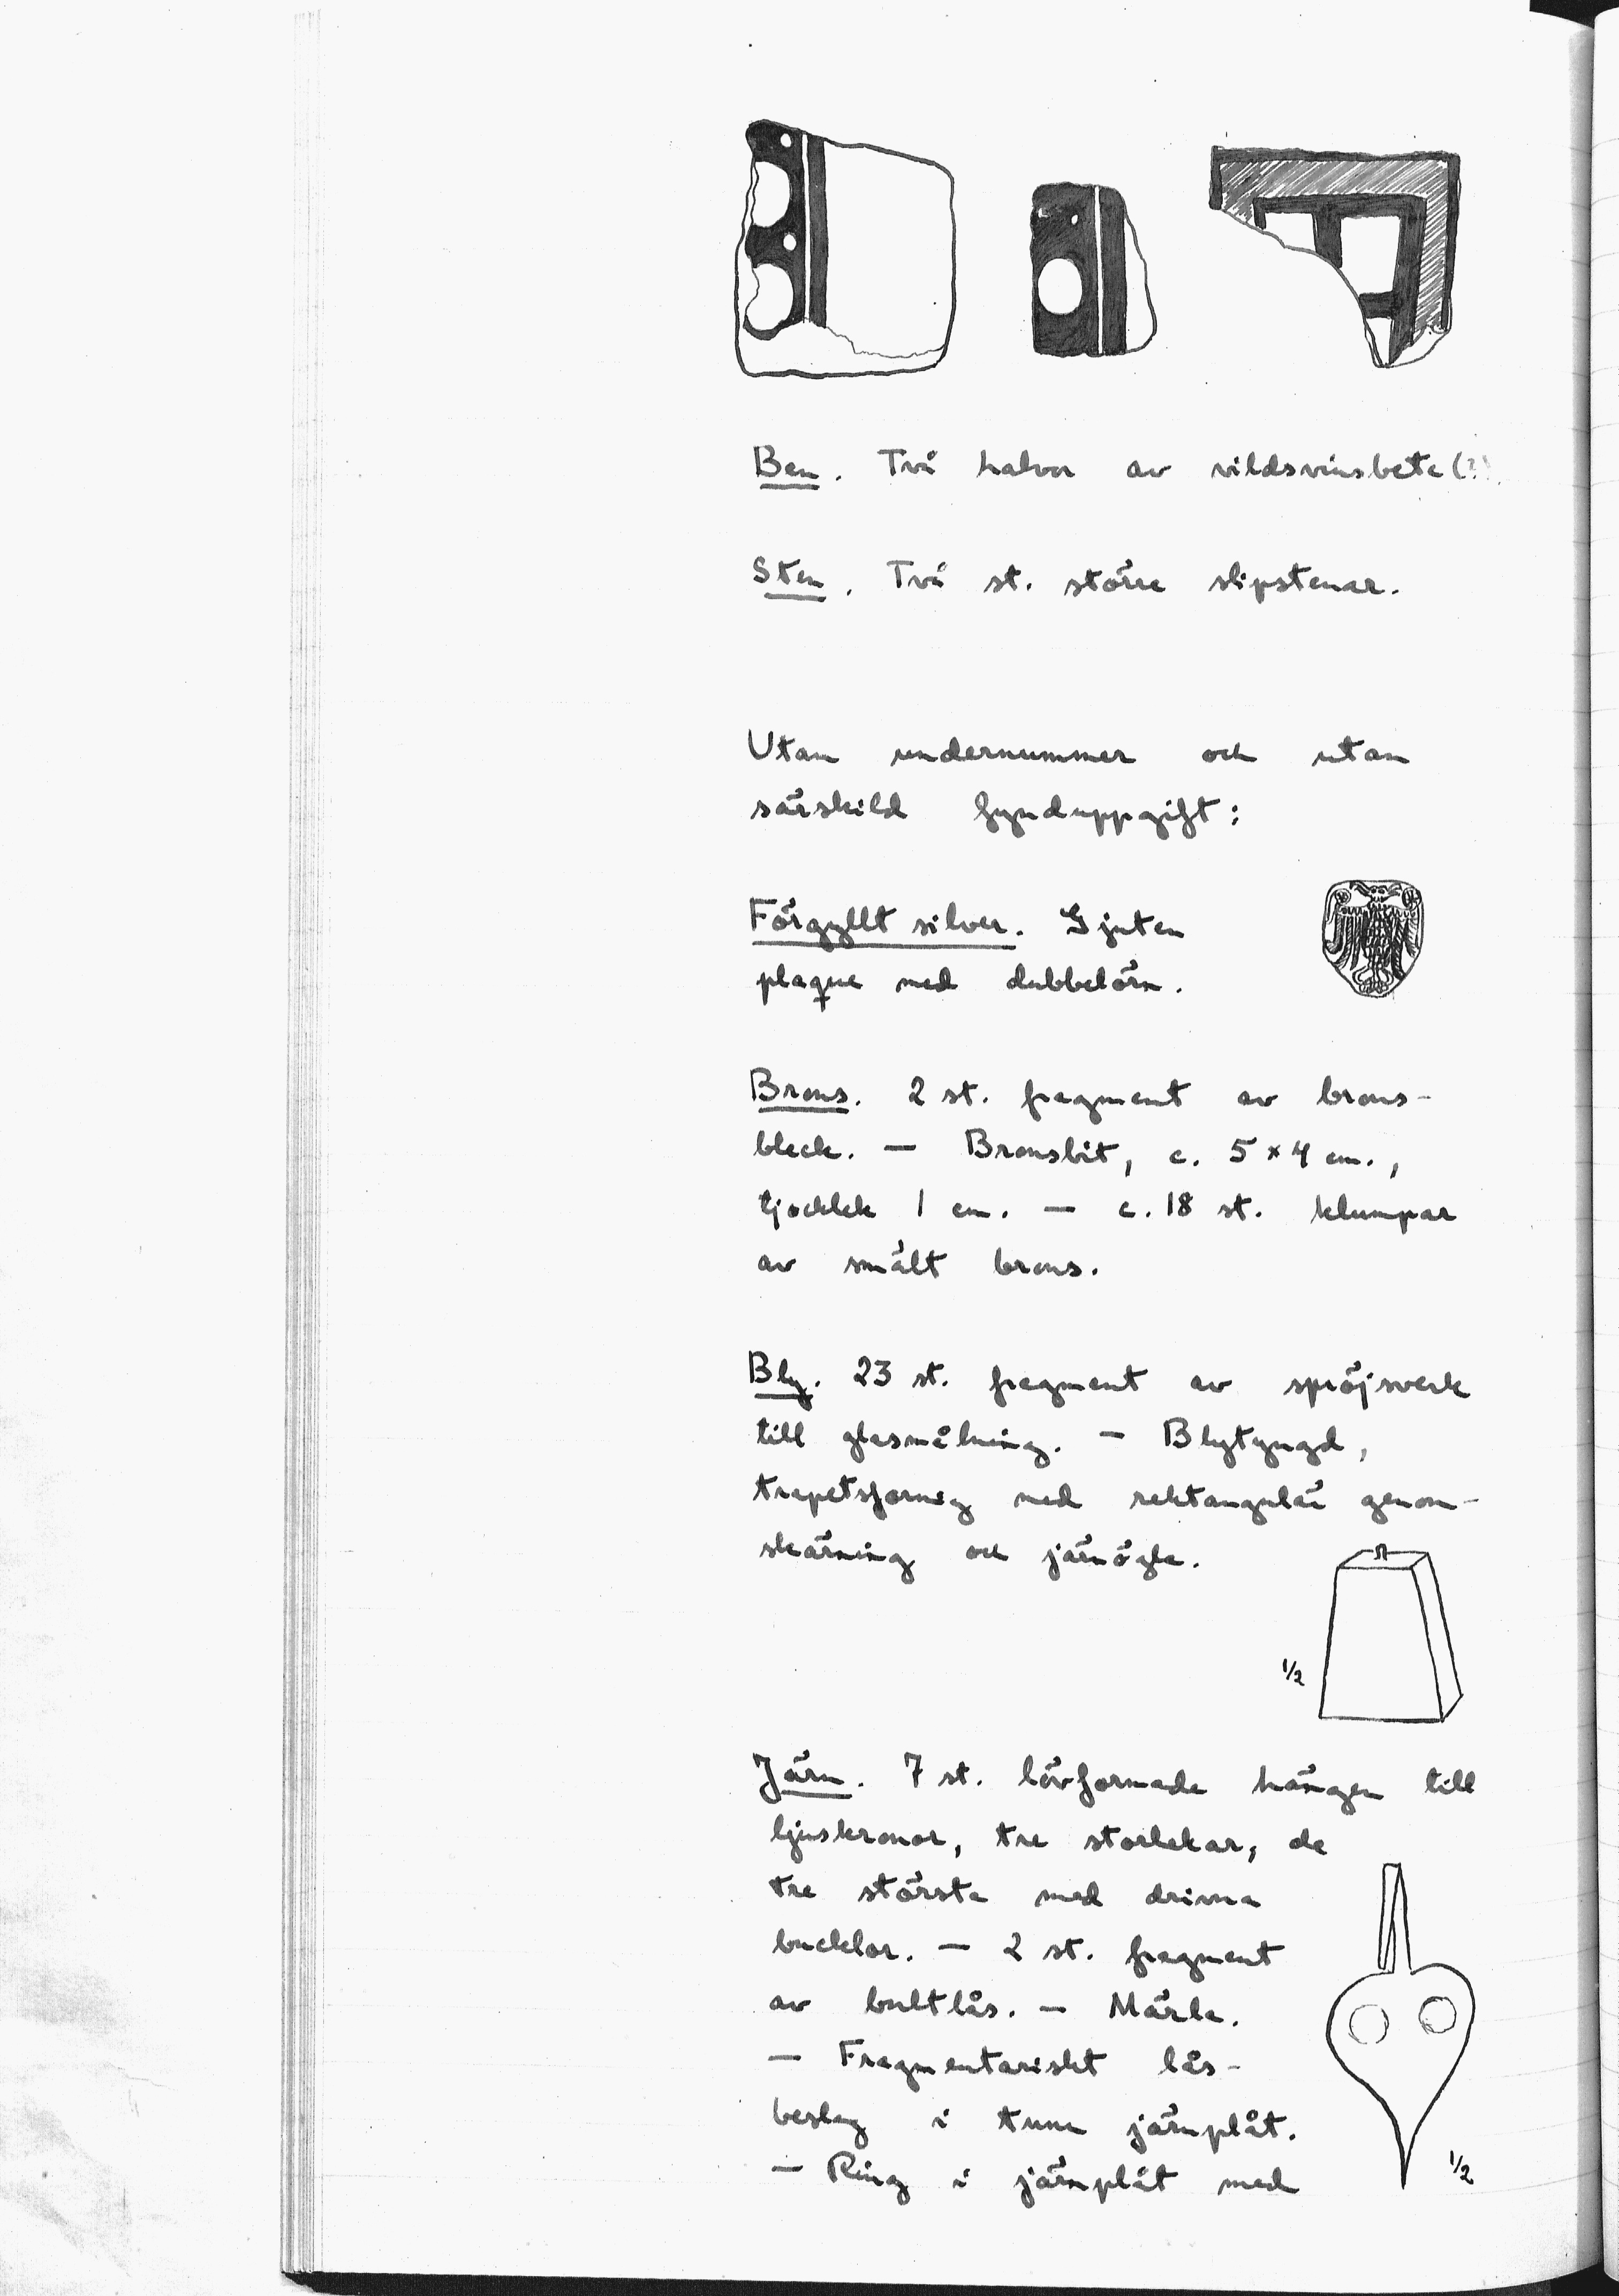 Ben. Två halvor av vildsvinsbete (?).
Sten. Två st. större slipstenar.
Utan undernummer och utan
särskild fynduppgift:
Förgyllt silver. Gjuten
plaque med dubbelörn.
Brons. 2 st. fragment av brons-
bleck. — Bronsbit, c. 5 × 4 cm.,
tjocklek 1 cm. — c. 18 st. klumpar
av smält brons.
Bly. 23 st. fragment av spröjsverk
till glasmålning. — Blytyngd,
trapetsformig med rektangulär genom-
skärning och järnögla.
1/2
Järn. 7 st. lövformade hängen till
ljuskronor, tre storlekar, de
tre största med drivna
bucklor. — 2 st. fragment
av bultlås. — Märla.
— Fragmentariskt lås-
beslag i tunn järnplåt.
— Ring i järnplåt med
1/2